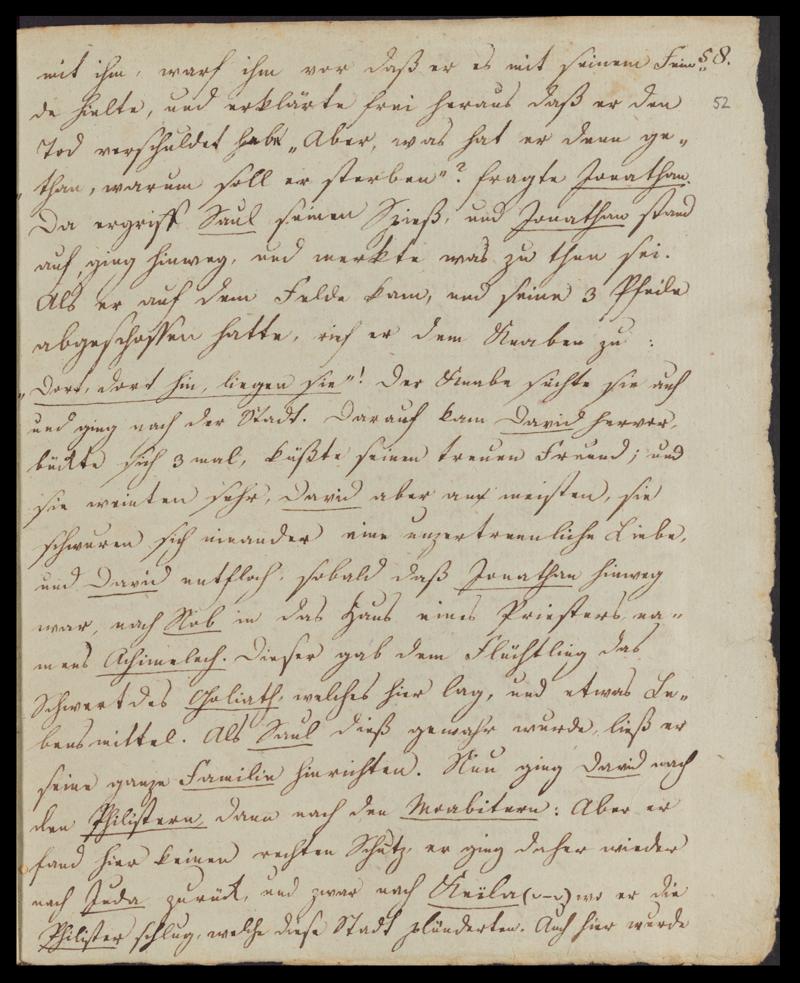 mit ihm, warf ihm vor daß er es mit seinem Fein- § 8.
de hielte, und erklärte frei heraus daß er den
52
Tod verschuldet habe „Aber, was hat er denn ge„
„than, warum soll er sterben"? fragte Jonathan.
Da ergriff Saul seinen Spieß, und Jonathan stand
auf, ging hinweg, und merkte was zu thun sei.
Als er auf dem Felde kam, und seine 3 Pfeile
abgeschossen hatte, rief er dem Knaben zu:
„Dort, dort hin, liegen sie"! Der Knabe suchte sie auf
und ging nach der Stadt. Darauf kam David hervor,
bückte sich 3 mal, küßte seinen treuen Freund; und
sie weinten sehr, David aber am meisten, sie
schwuren sich einander eine unzertrennliche Liebe,
und David entfloh, sobald daß Jonathan hinweg
war, nach Nob in das Haus eines Priesters na„
mens Achimelech. Dieser gab dem Flüchtling das
Schwert des Goliath, welches hier lag, und etwas Le„
bensmittel. Als Saul dieß gewahr wurde, ließ er
seine ganze Familie hinrichten. Nun ging David nach
den Philistern, dann nach den Moabitern: Aber er
fand hier keinen rechten Schutz, er ging daher wieder
nach Juda zurück, und zwar nach Keïla (⏑–⏑) wo er die
Philister schlug, welche diese Stadt plünderten. Auch hier wurde